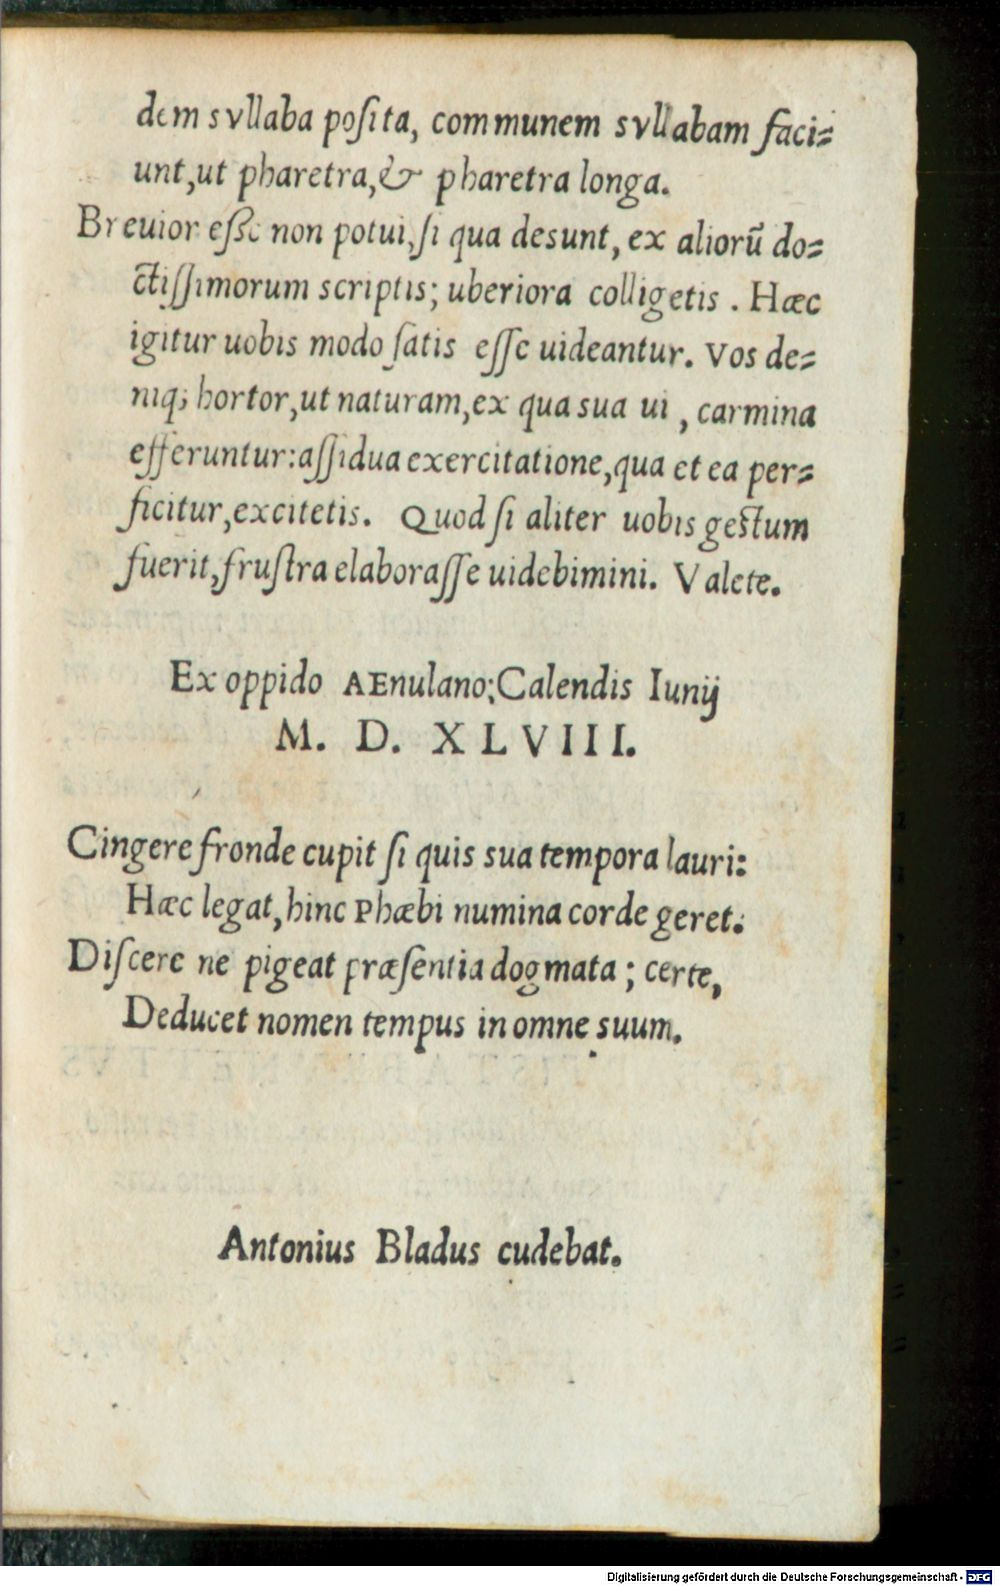 dem svllaba posita, communem svllabam faci=
unt,ut pharetra,& pharetra longa.
Breuior esse non potui,si qua desunt, ex aliorũ do=
ctissimorum scriptis; uberiora colligetis . Hæc
igitur uobis modo satis esse uideantur. Vos de=
niq; hortor,ut naturam,ex qua sua ui , carmina
efferuntur:assidua exercitatione,qua et ea per=
ficitur,excitetis. Quod si aliter uobis gestum
fuerit,frustra elaborasse uidebimini. Valete.
Ex oppido AEnulano;Calendis Iunij
M. D. XLVIII.
Cingere fronde cupit si quis sua tempora lauri:
Hæc legat,hinc Phæbi numina corde geret.
Discere ne pigeat præsentia dogmata ; certe,
Deducet nomen tempus in omne suum.
Antonius Bladus cudebat.
Digitalisierung gefördert durch die Deutsche Forschungsgemeinschaft - DFG